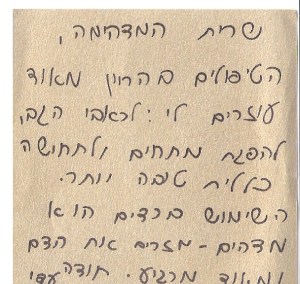 שרית המדהימה,
הטיפולים בהריון מאוד
עוזרים לי: לכאבי הגב,
להפגת מתחים ולתחושה
כללית טובה יותר.
השימוש בכדים הוא
מדהים - מזרים את הדם
ומאוד מרגיע. תודה עדי